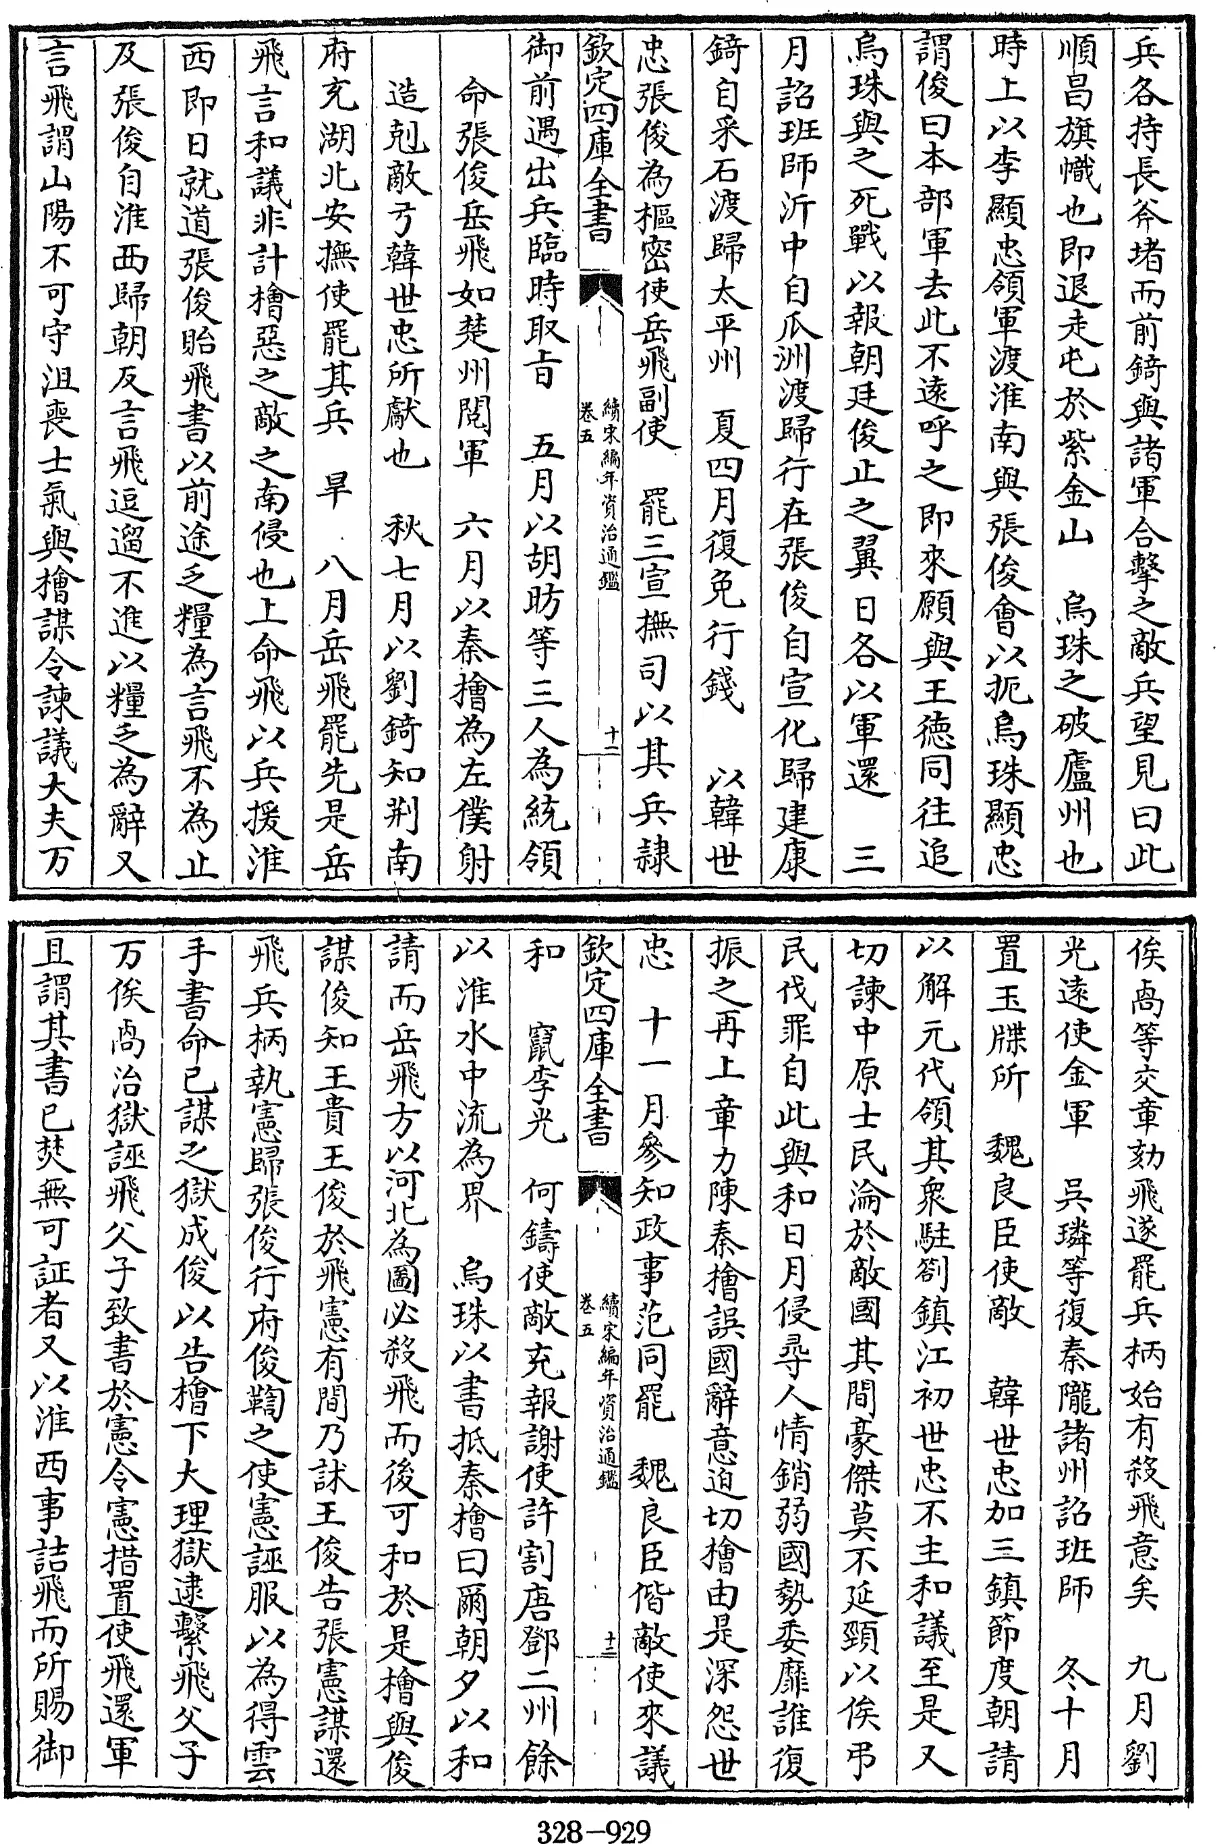 兵各持長斧堵而前錡與諸軍合擊之敵兵望見曰此
順昌旗幟也即退走屯於紫金山　烏珠之破廬州也
時上以李顯忠領軍渡淮南與張俊會以扼烏珠顯忠
謂俊曰本部軍去此不遠呼之即來願與王德同往追
烏珠與之死戰以報朝廷俊止之翼日各以軍還　三
月詔班師沂中自瓜洲渡歸行在張俊自宣化歸建康
錡自采石渡歸太平州　夏四月復免行錢　以韓世
忠張俊為樞密使岳飛副使　罷三宣撫司以其兵隷
欽定四庫全書
續宋編年資治通鑑
卷五
十二
御前遇出兵臨時取旨　五月以胡昉等三人為統領
命張俊岳飛如楚州閱軍　六月以秦檜為左僕射
造剋敵弓韓世忠所獻也　秋七月以劉錡知荆南
府充湖北安撫使罷其兵　旱　八月岳飛罷先是岳
飛言和議非計檜惡之敵之南侵也上命飛以兵援淮
西即日就道張俊貽飛書以前途乏糧為言飛不為止
及張俊自淮西歸朝反言飛逗遛不進以糧乏為辭又
言飛謂山陽不可守沮喪士氣與檜謀令諫議大夫万
俟卨等交章劾飛遂罷兵柄始有殺飛意矣　九月劉
光遠使金軍　吳璘等復秦隴諸州詔班師　冬十月
置玉牒所　魏良臣使敵　韓世忠加三鎮節度朝請
以解元代領其衆駐劄鎮江初世忠不主和議至是又
切諫中原士民淪於敵國其間豪傑莫不延頸以俟弔
民伐罪自此與和日月侵尋人情銷弱國勢委靡誰復
振之再上章力陳秦檜誤國辭意迫切檜由是深怨世
忠　十一月參知政事范同罷　魏良臣偕敵使來議
欽定四庫全書
續宋編年資治通鑑
卷五
十三
和　竄李光　何鑄使敵充報謝使許割唐鄧二州餘
以淮水中流為界　烏珠以書抵秦檜曰爾朝夕以和
請而岳飛方以河北為圖必殺飛而後可和於是檜與俊
謀俊知王貴王俊於飛憲有間乃訹王俊告張憲謀還
飛兵柄執憲歸張俊行府俊鞫之使憲誣服以為得雲
手書命已謀之獄成俊以告檜下大理獄逮繫飛父子
万俟卨治獄誣飛父子致書於憲令憲措置使飛還軍
且謂其書已焚無可証者又以淮西事詰飛而所賜御
328-929